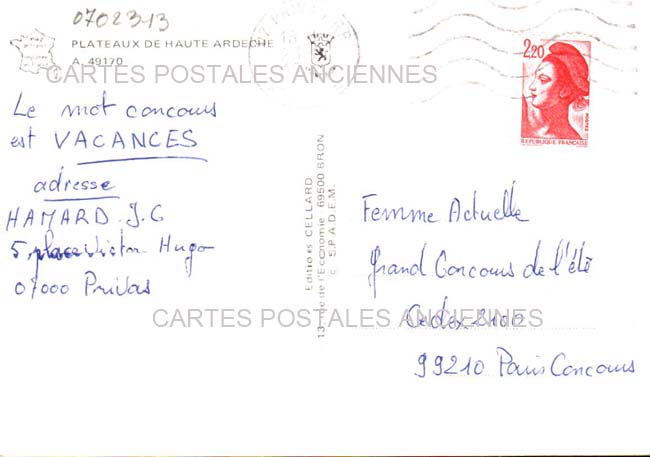 07023-13
PLATEAUX DE HAUTE ARDECHE
A. 49170
CARTES POSTALES ANCIENNES
Le mot concours
est VACANCES
adresse
HAMARD. J. C
5, place Victor Hugo
07000 Privas
Editions CELLARD
13 rue de l'Economie 69500 BRON
S.P.A.D.E.M.
2,20
REPUBLIQUE FRANÇAISE
Femme Actuelle
Grand Concours de l'été
Cedex 2100
99210 Paris Concours
CARTES POSTALES ANCIENNES